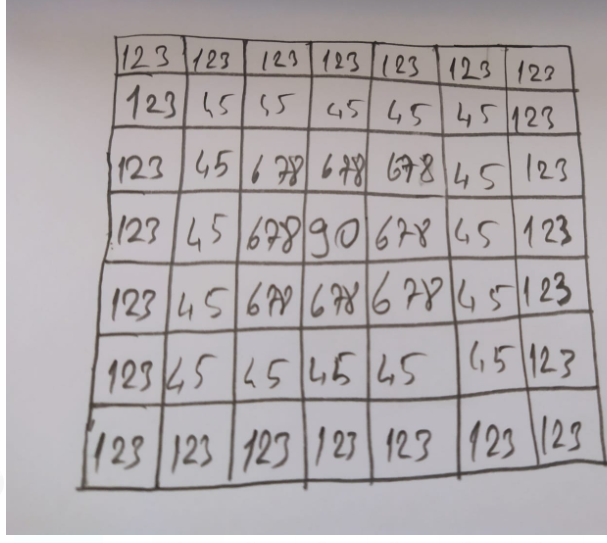 123 123 123 123 123 123 123
123 45 45 45 45 45 123
123 45 678 678 678 45 123
123 45 678 90 678 45 123
123 45 678 678 678 45 123
123 45 45 45 45 45 123
123 123 123 123 123 123 123